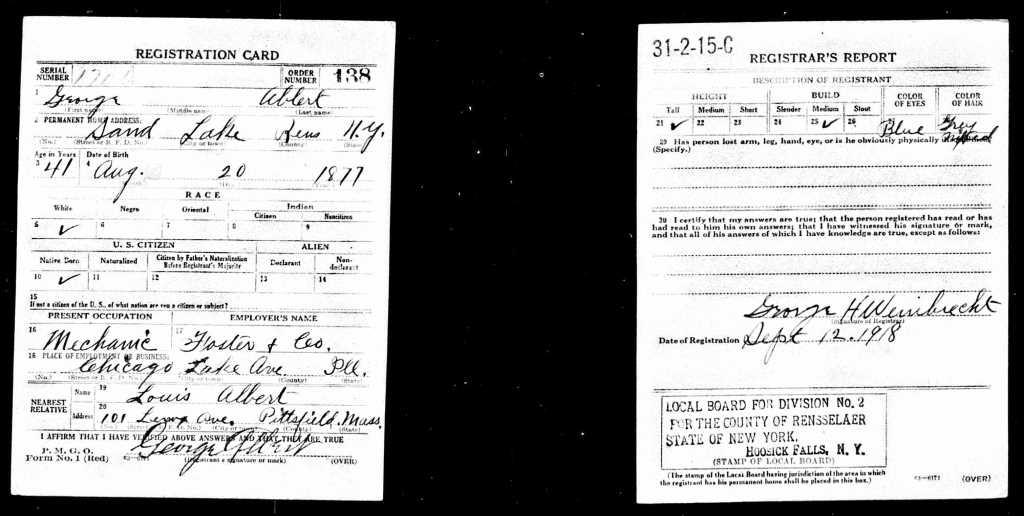 REGISTRATION CARD
SERIAL NUMBER
ORDER NUMBER 138
1 George Albert
(First name) (Middle name) (Last name)
2 PERMANENT HOME ADDRESS:
Sand Lake Rens N.Y.
(No.) (Street or R. F. D. No.) (City or town) (County) (State)
Age in Years Date of Birth
3 41 4 Aug. 20 1877
RACE
White Negro Oriental Indian
Citizen Noncitizen
5 ✓ 6 7 8 9
U. S. CITIZEN ALIEN
Native Born Naturalized Citizen by Father's Naturalization Before Registrant's Majority Declarant Non-declarant
10 ✓ 11 12 13 14
15
If not a citizen of the U. S., of what nation are you a citizen or subject?
PRESENT OCCUPATION EMPLOYER'S NAME
16 Mechanic 17 Foster & Co.
18 PLACE OF EMPLOYMENT OR BUSINESS:
Chicago Lake Ave. Ill.
(No.) (Street or R. F. D. No.) (City or town) (County) (State)
NEAREST RELATIVE
Name 19 Louis Albert
Address 20 101 Ave. Pittsfield, Mass.
(No.) (City or town) (County) (State)
I AFFIRM THAT I HAVE VERIFIED ABOVE ANSWERS AND THAT THEY ARE TRUE
P. M. G. O.
Form No. 1 (Red) George Albert
(Registrant's signature or mark) (OVER)
31-2-15-C
REGISTRAR'S REPORT
DESCRIPTION OF REGISTRANT
HEIGHT BUILD COLOR OF EYES COLOR OF HAIR
Tall Medium Short Slender Medium Stout
21 ✓ 22 23 24 25 ✓ 26 Blue Gray
29 Has person lost arm, leg, hand, eye, or is he obviously physically
(Specify.)
30 I certify that my answers are true; that the person registered has read or has
had read to him his own answers; that I have witnessed his signature or mark,
and that all of his answers of which I have knowledge are true, except as follows:
George H Weinbrecht
(Signature of Registrar)
Date of Registration Sept 12, 1918
LOCAL BOARD FOR DIVISION No. 2
FOR THE COUNTY OF RENSSELAER
STATE OF NEW YORK,
HOOSICK FALLS, N. Y.
(STAMP OF LOCAL BOARD)
(The stamp of the Local Board having jurisdiction of the area in which
the registrant has his permanent home shall be placed in this box.)
(OVER)